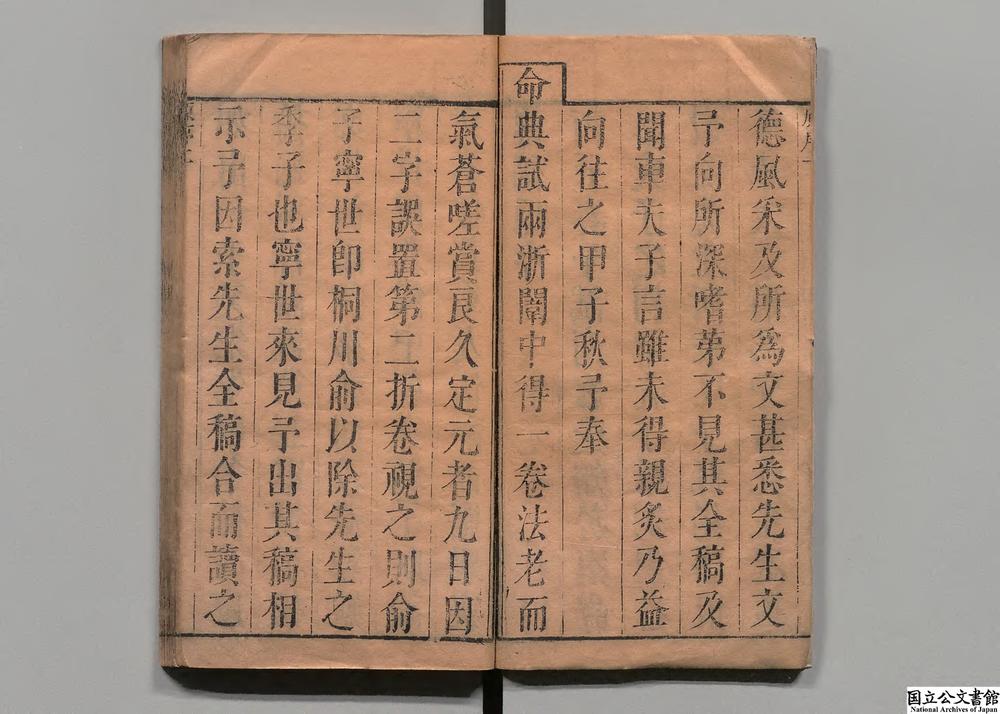 德風采及所爲文甚悉先生文
予向所深嗜第不見其全稿及
聞車夫子言雖未得親炙乃益
向往之甲子秋予奉
命典試兩浙闈中得一卷法老而
氣蒼嗟賞良久定元者九日因
二字誤置第二折卷視之則俞
子寧世卽桐川俞以除先生之
季子也寧世來見予出其稿相
示予因索先生全稿合而讀之
国立公文書館
National Archives of Japan